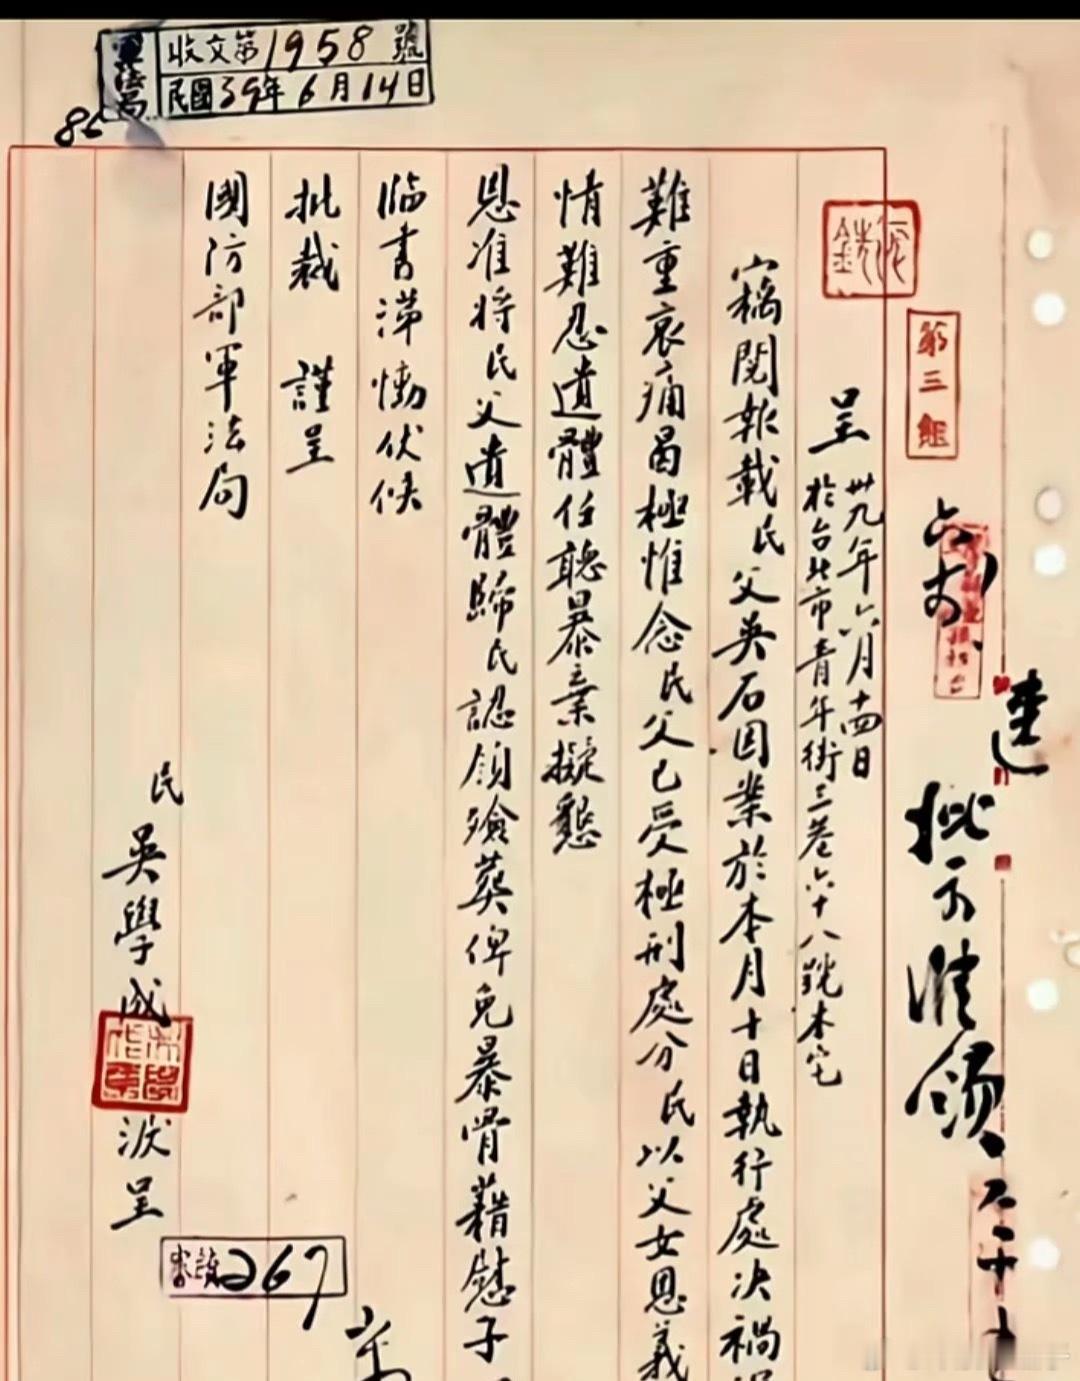 軍法局
收文第1958號
民國39年6月14日
第三組
呈
卅九年六月十四日
於台北市青年街三巷六十八號本宅
竊閱報載民父吳石因業於本月十日執行處決禍
難重哀痛曷極惟念民父已受極刑處分民以父女恩義
情難忍遺體任聽暴棄擬懇
恩准將民父遺體歸民認領殮葬俾免暴骨藉慰子
臨書涕慟伏候
批裁 謹呈
國防部軍法局
民 吳學成 淚呈
267
批示准領